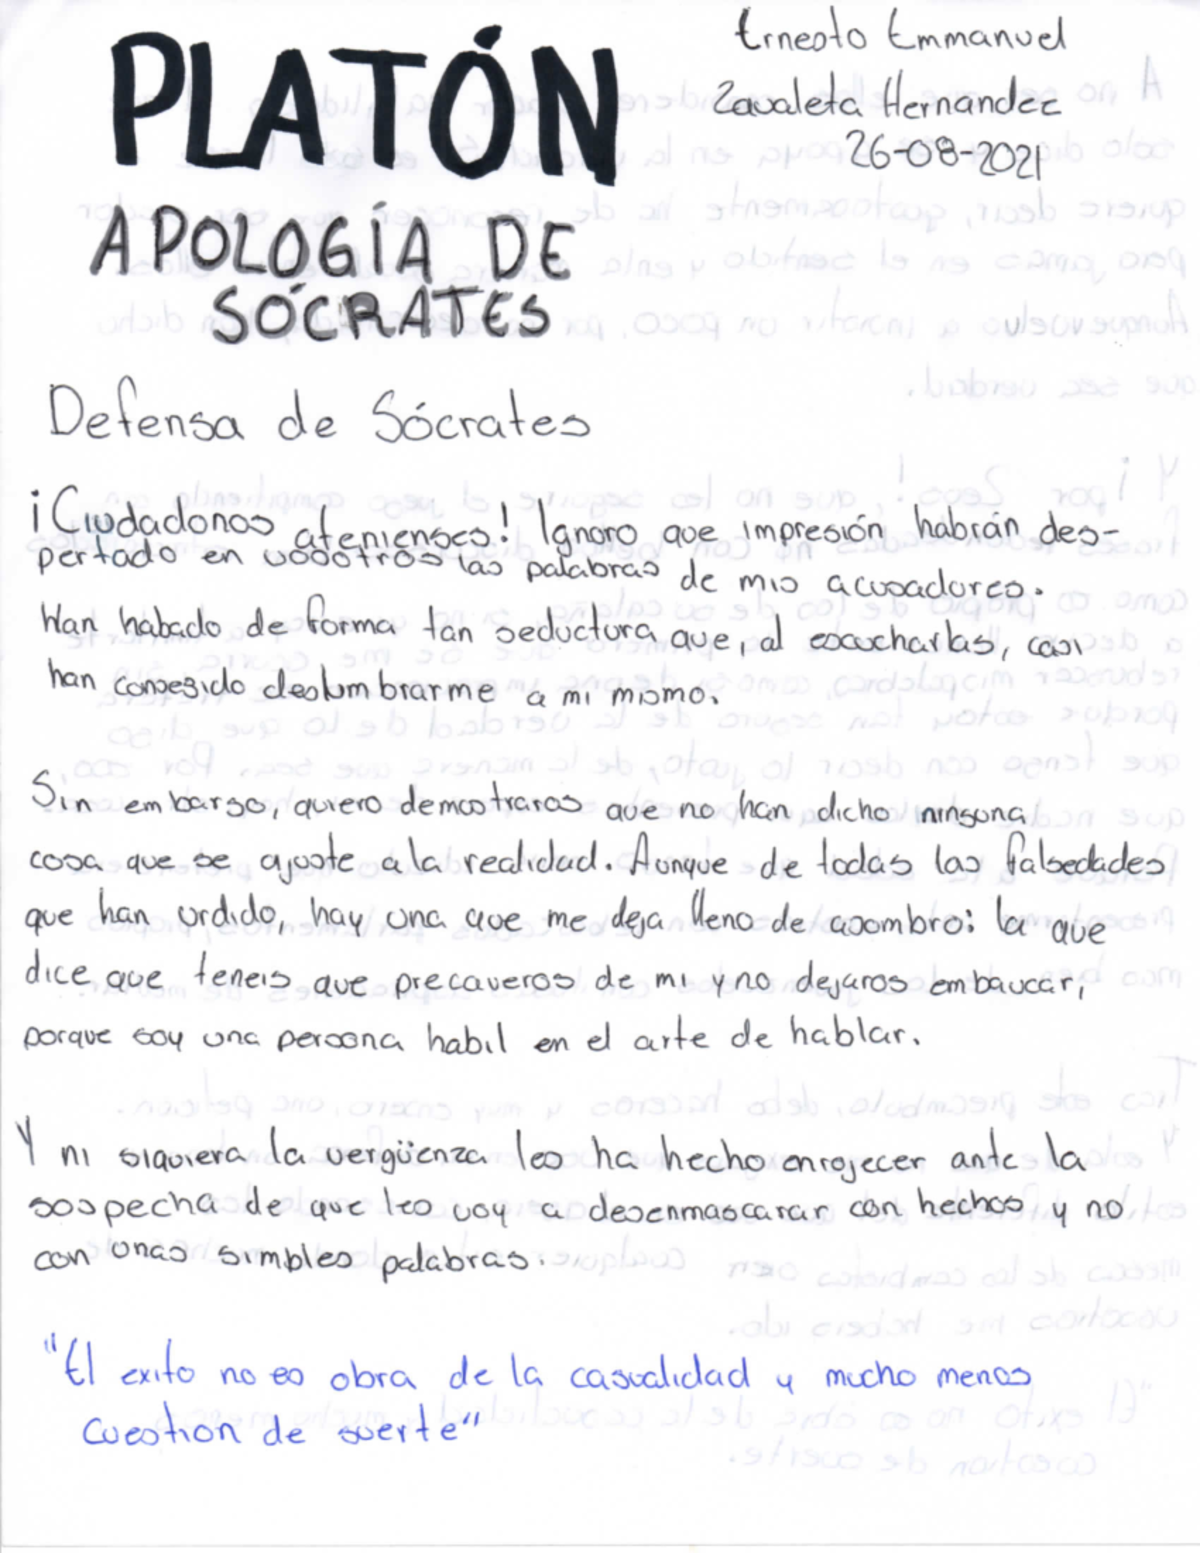 PLATÓN
Ernesto Emmanuel
Zavaleta Hernandez
26-08-2021
APOLOGÍA DE
SÓCRATES
Defensa de Sócrates
¡Ciudadanos atenienses! Ignoro que impresión habrán des-
pertado en vosotros las palabras de mis acusadores.
Han habado de forma tan seductora que, al escucharlas, casi
han consegido deslumbrarme a mi mismo.
Sin embargo, quiero demostraros que no han dicho ninguna
cosa que se ajuste a la realidad. Aunque de todas las falsedades
que han urdido, hay una que me deja lleno de asombro: la que
dice que teneis que precaveros de mi y no dejaros embaucar,
porque soy una persona habil en el arte de hablar.
Y ni siquiera la vergüenza les ha hecho enrojecer ante la
sospecha de que les voy a desenmascarar con hechos y no
con unas simples palabras.
"El exito no es obra de la casualidad y mucho menos
cuestion de suerte"